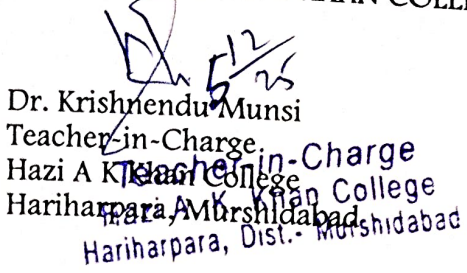 KHAN COLLE
5/12/25
Dr. Krishnendu Munsi
Teacher-in-Charge
Hazi A K Khan College
Hariharpara, Murshidabad
Teacher-in-Charge
Hazi A. K. Khan College
Hariharpara, Dist.- Murshidabad